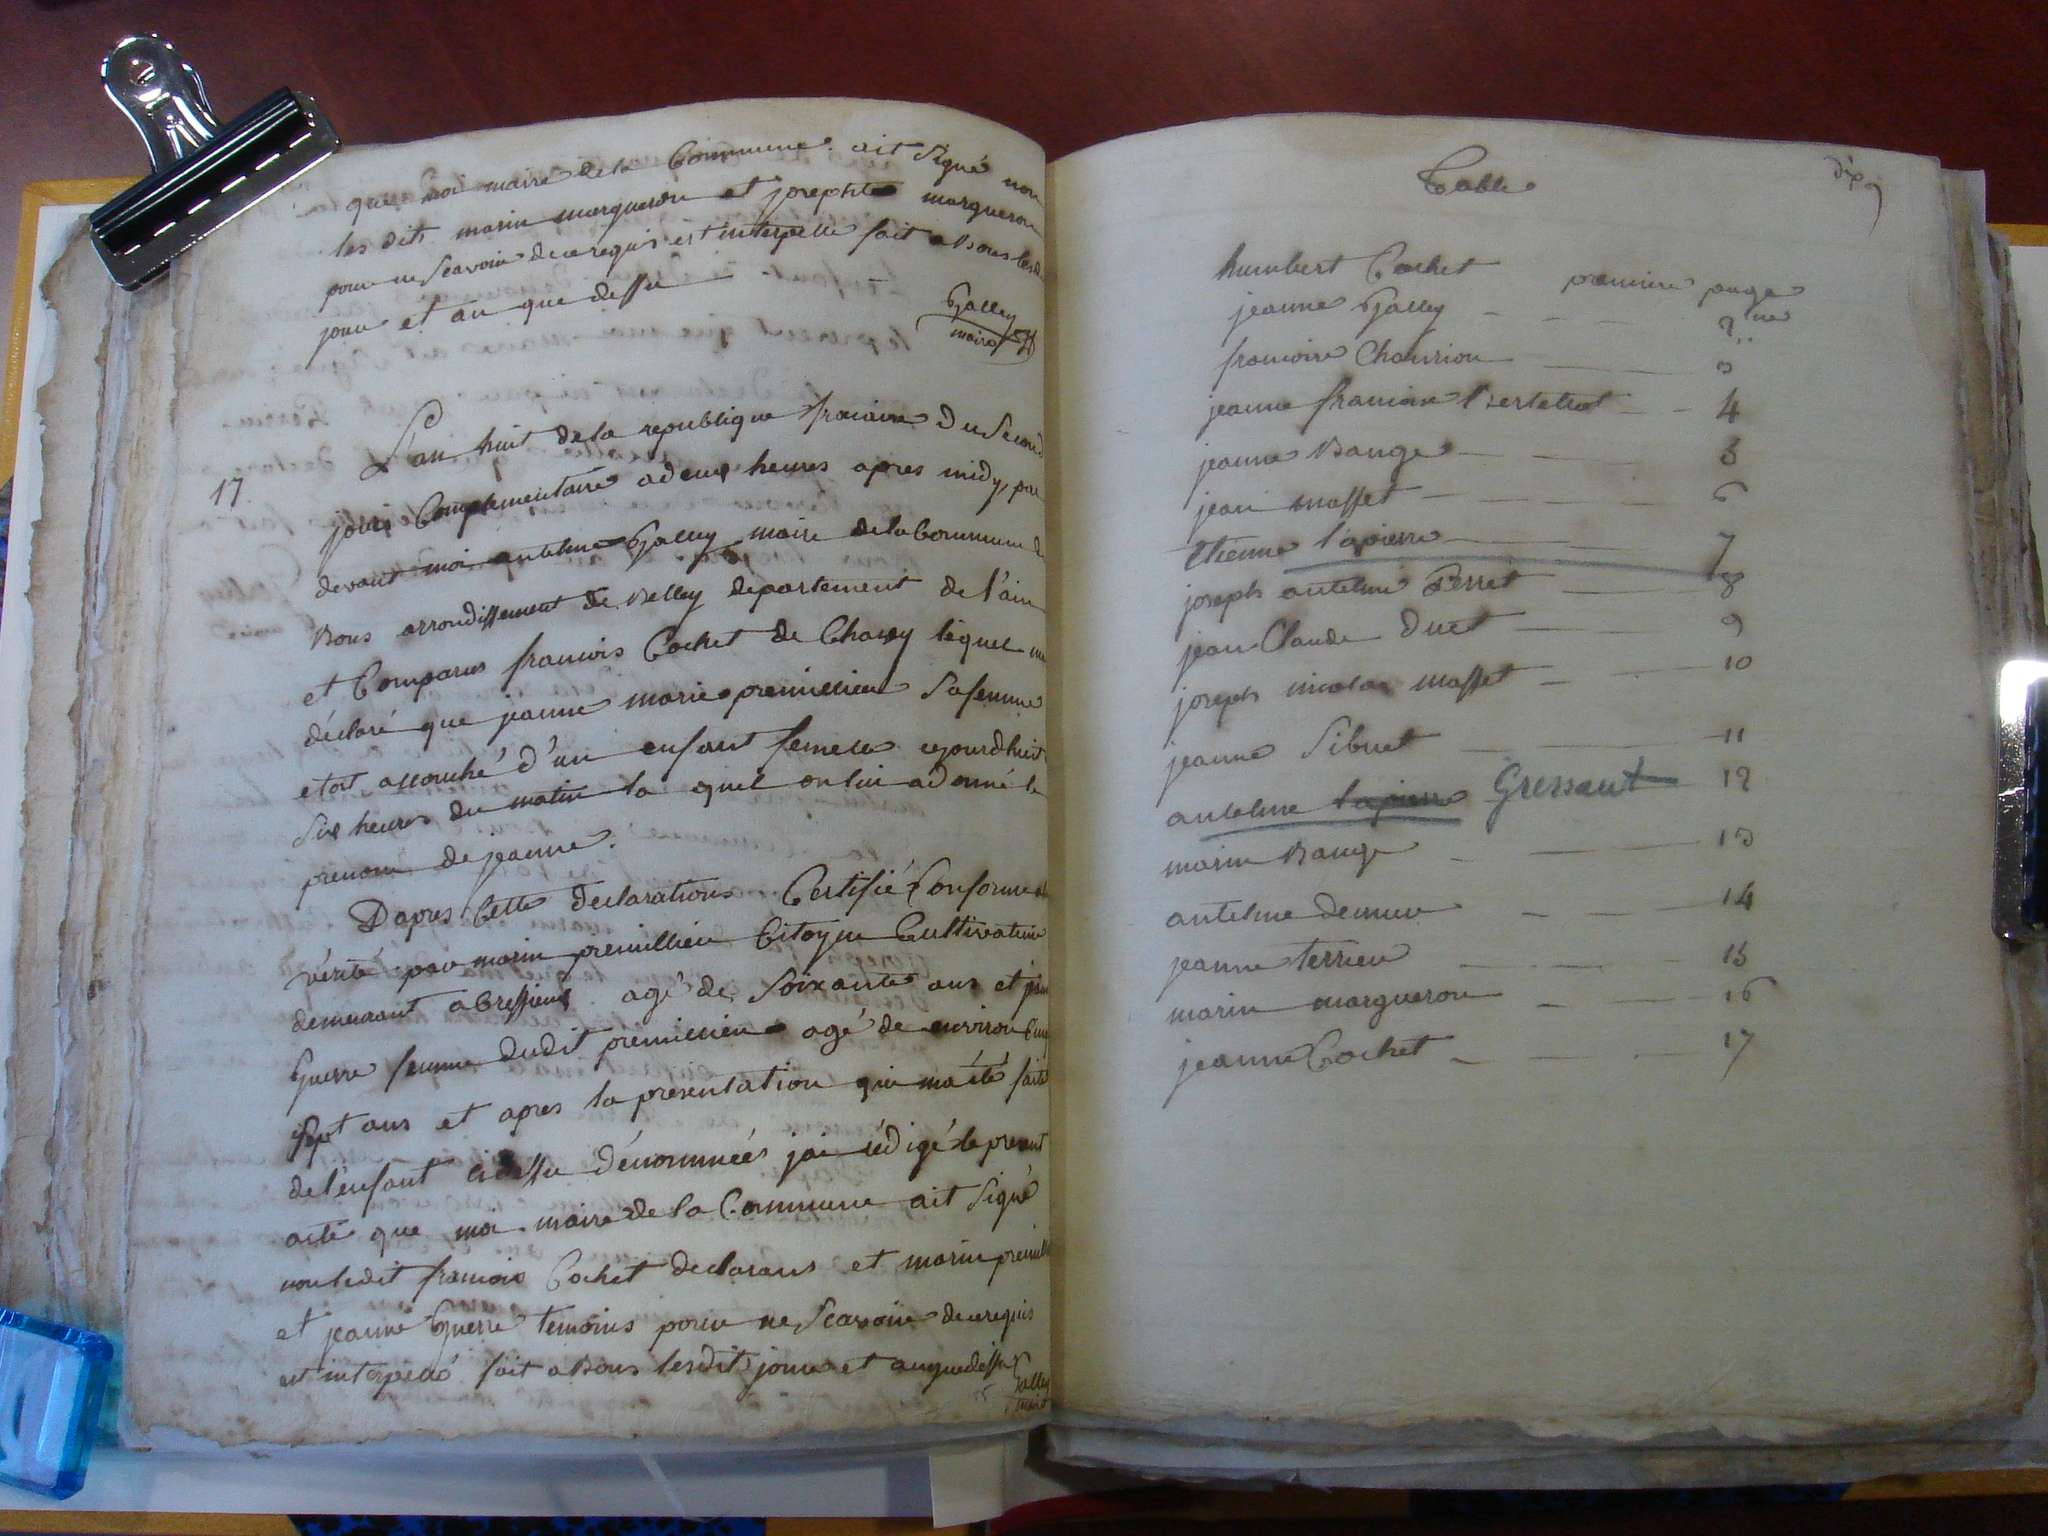 que moi maire de la Commune ait Signé non
les dits marin margueron et josephte margueron
pour ne Scavoir de ce requis est interpellé fait a Bons lesd
jour et an que dessu
Galley
maire
17
L'an huit de la republique francaise du Second
jours Complementaire a deux heures apres midy, par
devant moi antelme Galley maire de la Commune de
Bons arrondissement de Belley departement de l'ain
et Comparus francois Cochet de Chazey léquel me
déclaré que jeanne marie premillieu Safemme
etoit accouché d'un enfant femelle cejourdhuit
Six heures du matin la quel on lui a donné le
prenom de jeanne.
Dapres Cette declarations Certifié Conforme a la
vérité par marin premillieu Citoyen Cultivateur
demeurant a Bressieux agé de Soixante ans et jeanne
Guerre femme dudit premillieu agé de environ
Sept ans et apres la presentation qui ma été faite
de l'enfant cidessu dénommées jai rédigé le present
acte que moi maire de la Commune ait Signé
non ledit francois Cochet declarans et marin premill
et jeanne Guerre temoins pour ne Scavoir de ce requis
est interpellé fait a Bons lesdit jour et anquedessu
Galley
maire
Table
dix
humbert Cochet premiere page
jeanne Galley 2 me
francoise Chaurion 3
jeanne francoise Berthelet 4
jeanne Bange 5
jean masset 6
Etienne lapierre 7
joseph antelme Perret 8
jean Claude Duet 9
joseph nicolas masset 10
jeanne Sibuet 11
antelme lapierre Gressent 12
marin Bange 13
antelme demeur 14
jeanne terrieu 15
marin margueron 16
jeanne Cochet 17